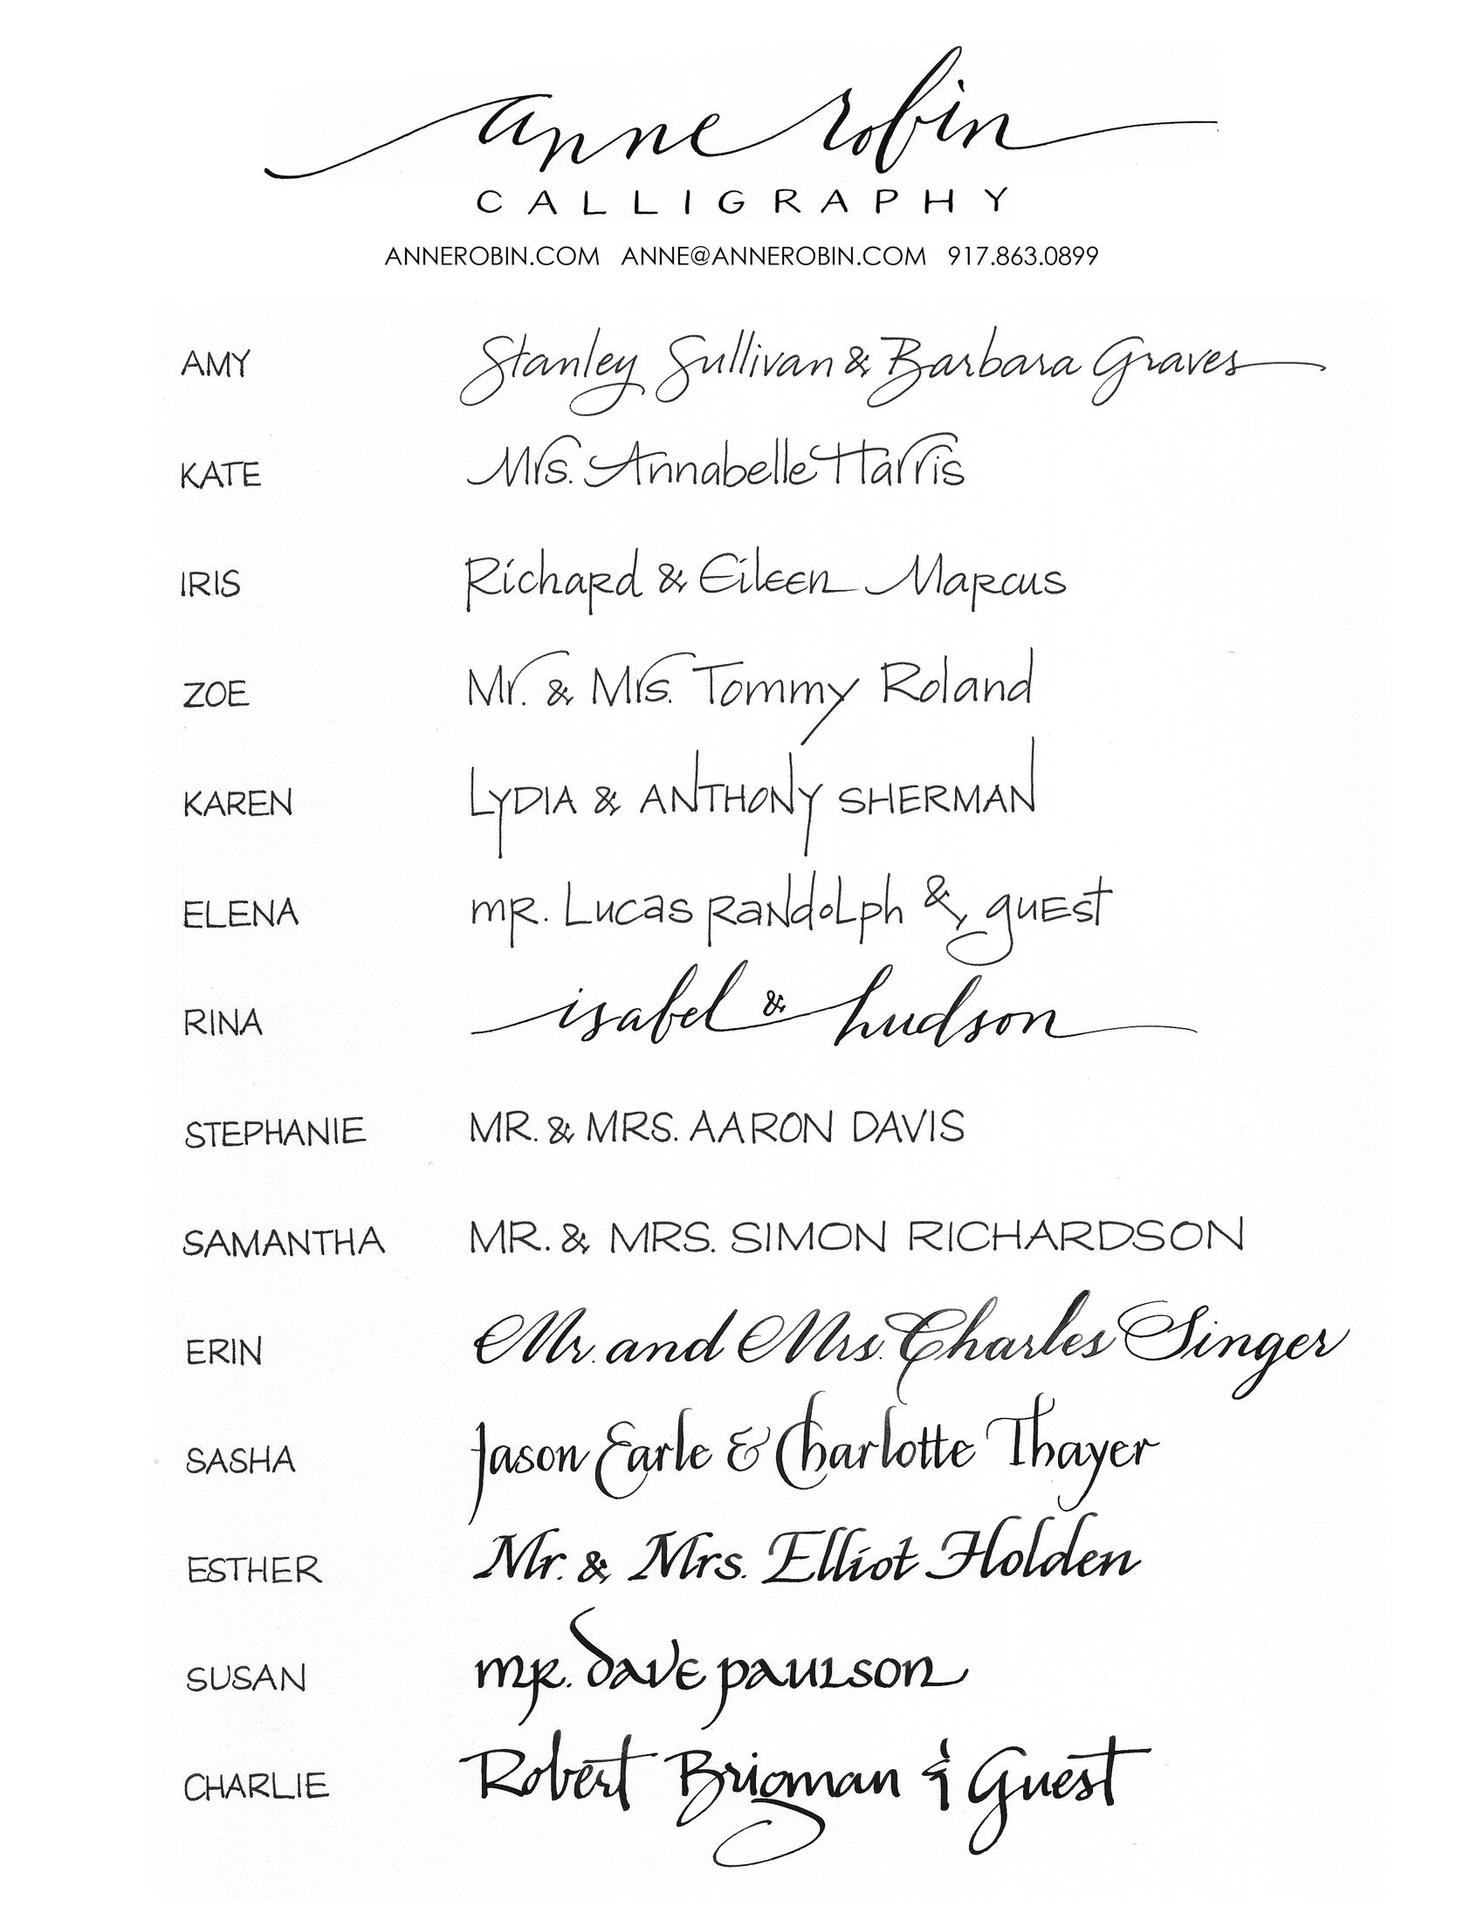 anne robin
CALLIGRAPHY
ANNEROBIN.COM ANNE@ANNEROBIN.COM 917.863.0899
AMY Stanley Sullivan & Barbara Graves
KATE Mrs. Annabelle Harris
IRIS Richard & Eileen Marcus
ZOE Mr. & Mrs. Tommy Roland
KAREN LYDIA & ANTHONY SHERMAN
ELENA mR. Lucas RaNdoLph & guEst
RINA isabel & hudson
STEPHANIE MR. & MRS. AARON DAVIS
SAMANTHA MR. & MRS. SIMON RICHARDSON
ERIN Mr. and Mrs. Charles Singer
SASHA Jason Earle & Charlotte Thayer
ESTHER Mr. & Mrs. Elliot Holden
SUSAN mr. dave paulson
CHARLIE Robert Brigman & Guest